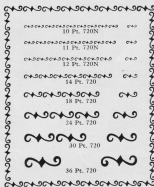 10 Pt. 720N
11 Pt. 720N
12 Pt. 720N
14 Pt. 720
18 Pt. 720
24 Pt. 720
30 Pt. 720
36 Pt. 720